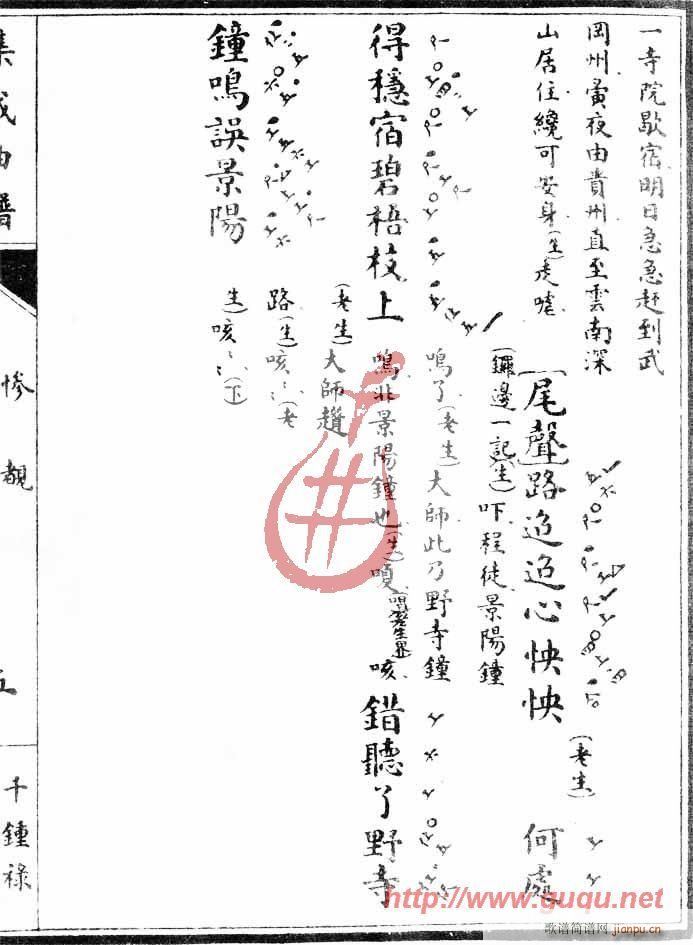 一寺院歇宿明日急急赶到武
岡州黃夜由貴州直至雲南深
山居住纔可安身(生)走嗄
[尾聲]路迢迢心怏怏(老生)何處
(鑼邊一記)(生)吓程徒景陽鐘
得穩宿碧梧枝上
鳴了(老生)大師此乃野寺鐘
鳴非景陽鐘也(生)嗄
咳錯聽了野寺
鐘鳴誤景陽
(老生)大師趲
路(生)咳〻(老
生)咳〻(下)
集成曲譜
慘覩
五
千鍾祿
http://www.guqu.net
歌谱简谱网
jianpu.cn